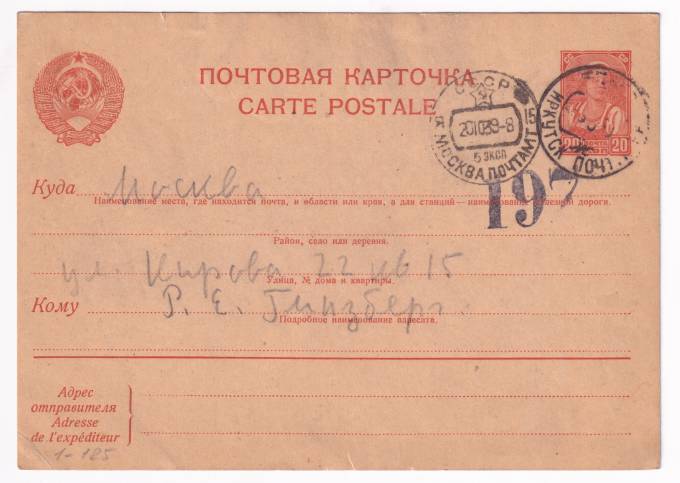 ПОЧТОВАЯ КАРТОЧКА
CARTE POSTALE
СССР
201039-8
15 ЭКСП
МОСКВА ПОЧТАМТ 15
ИРКУТСК ПОЧТ
20 ПОЧТА 20
197
Куда Москва
Наименование места, где находится почта, и области или края, а для станций—наименование железной дороги.
Район, село или деревня.
ул. Кирова 22 кв 15
Улица, № дома и квартиры.
Кому Р. Е. Гинзберг.
Подробное наименование адресата.
Адрес
отправителя
Adresse
de l'expéditeur
1-125